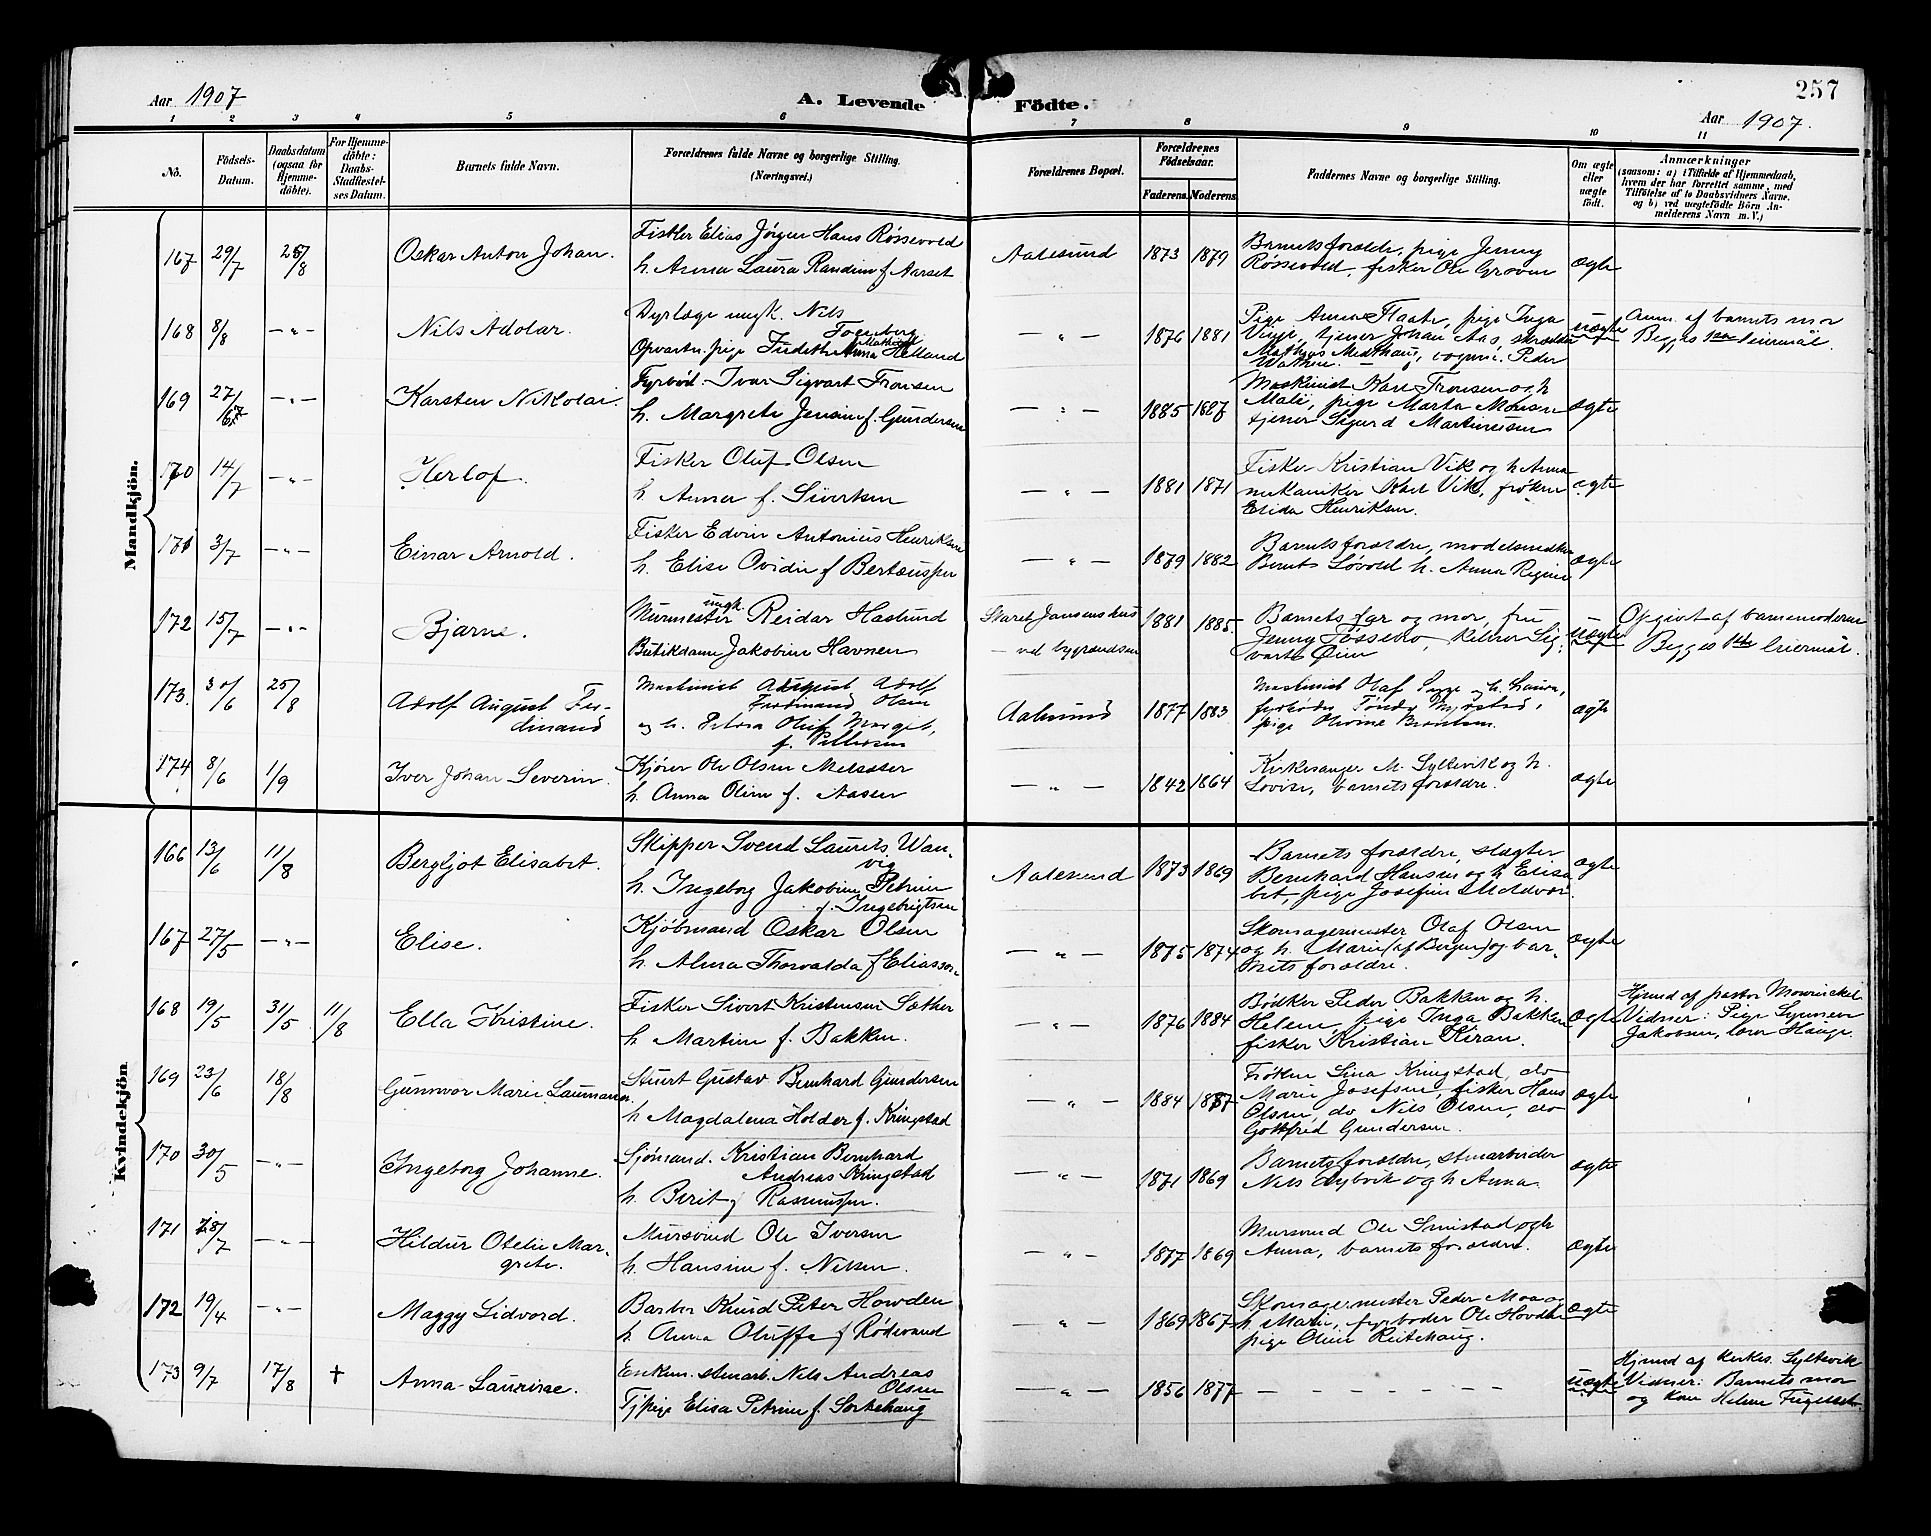 257
Aar 1907
A. Levende Födte.
Aar 1907.
1 2 3 4 5 6 7 8 9 10 11
No.
Födsels-
Datum.
Daabsdatum
(ogsaa for
Hjemme-
döbte).
For Hjemme-
döbte:
Daabs-
Stadfæstel-
ses Datum.
Barnets fulde Navn.
Forældrenes fulde Navne og borgerlige Stilling.
(Næringsvei.)
Forældrenes Bopæl.
Forældrenes
Födselsaar.
Faderens. Moderens.
Faddernes Navne og borgerlige Stilling.
Om ægte
eller
uægte
födt.
Anmærkninger
(saasom: a) i Tilfælde af Hjemmedaab,
hvem der har forrettet samme, med
Tilföielse af to Daabsvidners Navne,
og b) ved uægtefödte Börn An-
melderens Navn m. V.)
Mandkjön.
167 29/7 25/8 Oskar Anton Johan.
Fisker Elias Jørgen Hans Røssevold
h. Anna Laura Randine f. Aarset
Aalesund 1873 1879
Barnets forældre, pige Jenny
Røssevold, fisker Ole Groven
ægte
168 8/8 — „ — Nils Adolar.
Dyrlæge ungk. Nils Fogenberg
Opvartn. pige Judith Anna Mathilde Helland
— „ — 1876 1881
Pige Anna Flaate, pige Inga
Vinje, tjener Johan Aas, skrædder
Mathias Medhaug, vognm. Peder
Mathisen.
uægte
Anm. af barnets mor
Begges 1ste leiermål.
169 27/6 — „ — Karsten Nikolai.
Fyrbød. Ivar Sigvart Fronsen
h. Margrete Jensine f. Gundersen
— „ — 1885 1887
Maskinist Karl Fronsen og h.
Mali, pige Marta Monsen
tjener Sigurd Martinussen
ægte
170 14/7 — „ — Herlof.
Fisker Oluf Olsen
h. Anna f. Sivertsen
— „ — 1881 1871
Fisker Kristian Vik og h. Anna
mekaniker Karl Vik, frøken
Elida Henriksen.
ægte
171 3/7 — „ — Einar Arnold.
Fisker Edvin Antonius Henriksen
h. Elise Ovidie f. Berteussen
— „ — 1879 1882
Barnets forældre, modelsnedker
Bernt Løvold h. Anna Regine
ægte
172 15/7 — „ — Bjarne.
Murmester ungk. Reidar Haslund
Butikdame Jakobine Havnen
Skaret Jansens hus
— ved bygrændsen
1881 1885.
Barnets far og mor, fru
Jenny Fossebro, kelner Sig-
vart Øien
uægte
Opgivt af barnemoderen
Begges 1ste leiermål.
173. 30/6 25/8 Adolf August Fer-
dinand
Maskinist August Adolf
Ferdinand Olsen
og h. Petra Oluf Margit,
f. Pettersen
Aalesund 1877 1883
Maskinist Olaf og h. Laura,
fyrbøder Myrstad,
pige Olivine
ægte
174 8/6 1/9 Iver Johan Severin.
Kjører Ole Olsen Melsæter
h. Anna Oline f. Aasen
— „ — 1842 1864
Kirkesanger M. Syltevik og h.
Lovise, barnets forældre.
ægte
Kvindekjön
166 13/6 11/8 Bergljot Elisabet.
Skipper Svend Laurits Wan-
vig
h. Ingeborg Jakobine Petrine
f. Ingebrigtsen
Aalesund 1873 1869
Barnets forældre, slagter
Bernhard Hansen og h. Elisa-
bet, pige Josefine Moldvær
ægte
167 27/5 — „ — Elise.
Kjøbmand Oskar Olsen
h. Alma Thorvalda f. Eliassen
— „ — 1875 1874
Skomagermester Olaf Olsen
og h. Marie (af Bergen) og bar-
nets forældre.
ægte
168 19/5 31/5 11/8 Ella Kristine.
Fisker Sivert Kristensen Sæther
h. Martine f. Bakken.
— „ — 1876 1884
Bødker Peder Bakken og h.
Helene, pige Inga Bakken
fisker Kristian Kiran.
ægte
Hjemd. af pastor Mowinckel
Vidner: Pige Synnøve
Jakobsen, lærer Hauge.
169 23/6 18/8 Gunnvor Marie Laumann.
Stuert Gustav Bernhard Gundersen
h. Magdalena Holder f. Kringstad
— „ — 1884 1887
Frøken Sina Kringstad, do
Marie Josefsen, fisker Hans
Olsen, do Nils Olsen, do
Gottfred Gundersen.
ægte
170 30/5 — „ — Ingeborg Johanne.
Sjømand. Kristian Bernhard
Andreas Kringstad
h. Berit f. Rasmussen.
— „ — 1871 1869
Barnets forældre, stenarbeider
Nils Nybvik og h. Anna.
ægte
171 28/7 — „ — Hildur Otelie Mar-
grete.
Mursvend Ole Iversen
h. Hansine f. Nilsen.
— „ — 1877 1869
Mursvend Ole Smistad og h.
Anna, barnets forældre.
ægte
172 19/4 — „ — Maggy Lidvord.
Barber Knud Peter Howden
h. Anna Oluffa f. Rødvand
— „ — 1869 1867
Skomagermester Peder Moa og
h. Marie, fyrbøder Ole Hovden
pige Oline Reitehaug.
ægte
173 9/7 17/8 ✝ Anna Laurise.
Enkem. stenarb. Nils Andreas
Olsen
Tj. pige Elisa Petrine f. Sorkehaug
— „ — 1856 1877 — — — — — —
uægte
Hjemd af kirkes. Syltevik
Vidner: Barnets mor
og kone Helene